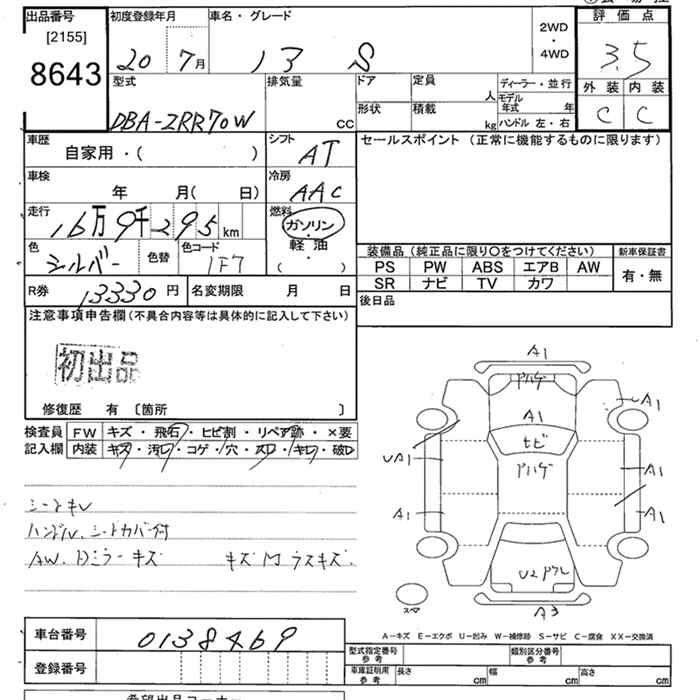 出品番号
[2155]
8643
初度登録年月
20 7月
車名・グレード
13 S
2WD
・
4WD
評価点
3.5
外装 内装
C C
型式
DBA-ZRR70W
排気量
CC
ドア
定員
人
ディーラー・並行
モデル年式 年
形状
積載
kg
ハンドル 左・右
車歴
自家用・( )
シフト
AT
セールスポイント (正常に機能するものに限ります)
車検
年 月( 日)
冷房
AAC
走行
16万9千295km
燃料
ガソリン
・
軽油
( )
色
シルバー
色替
色コード
1F7
装備品(純正品に限り〇をつけてください)
新車保証書
PS PW ABS エアB AW
SR ナビ TV カワ
有・無
R券 13330円
名変期限 月 日
後日品
注意事項申告欄(不具合内容等は具体的に記入して下さい)
初出品
修復歴 有 〔箇所 〕
検査員記入欄
FW キズ・飛石・ヒビ割・リペア跡・×要
内装 キズ・汚レ・コゲ・穴・スレ・キレ・破レ
シートキレ
ハンドル、シートカバー付
AW、Dミラーキズ キズ M ラスキズ.
A1
ヤハゲ
A1
A1
ヒビ
ヤハゲ
UA1
A1
A1
A1
U2 ヤワレ
A3
スペア
A-キズ E-エクボ U-凹み W-補修跡 S-サビ C-腐食 XX-交換済
車台番号
0138469
登録番号
型式指定番号
参考
類別区分番号
参考
車庫証明用
参考
長さ cm
幅 cm
高さ cm
希望出品コーナー